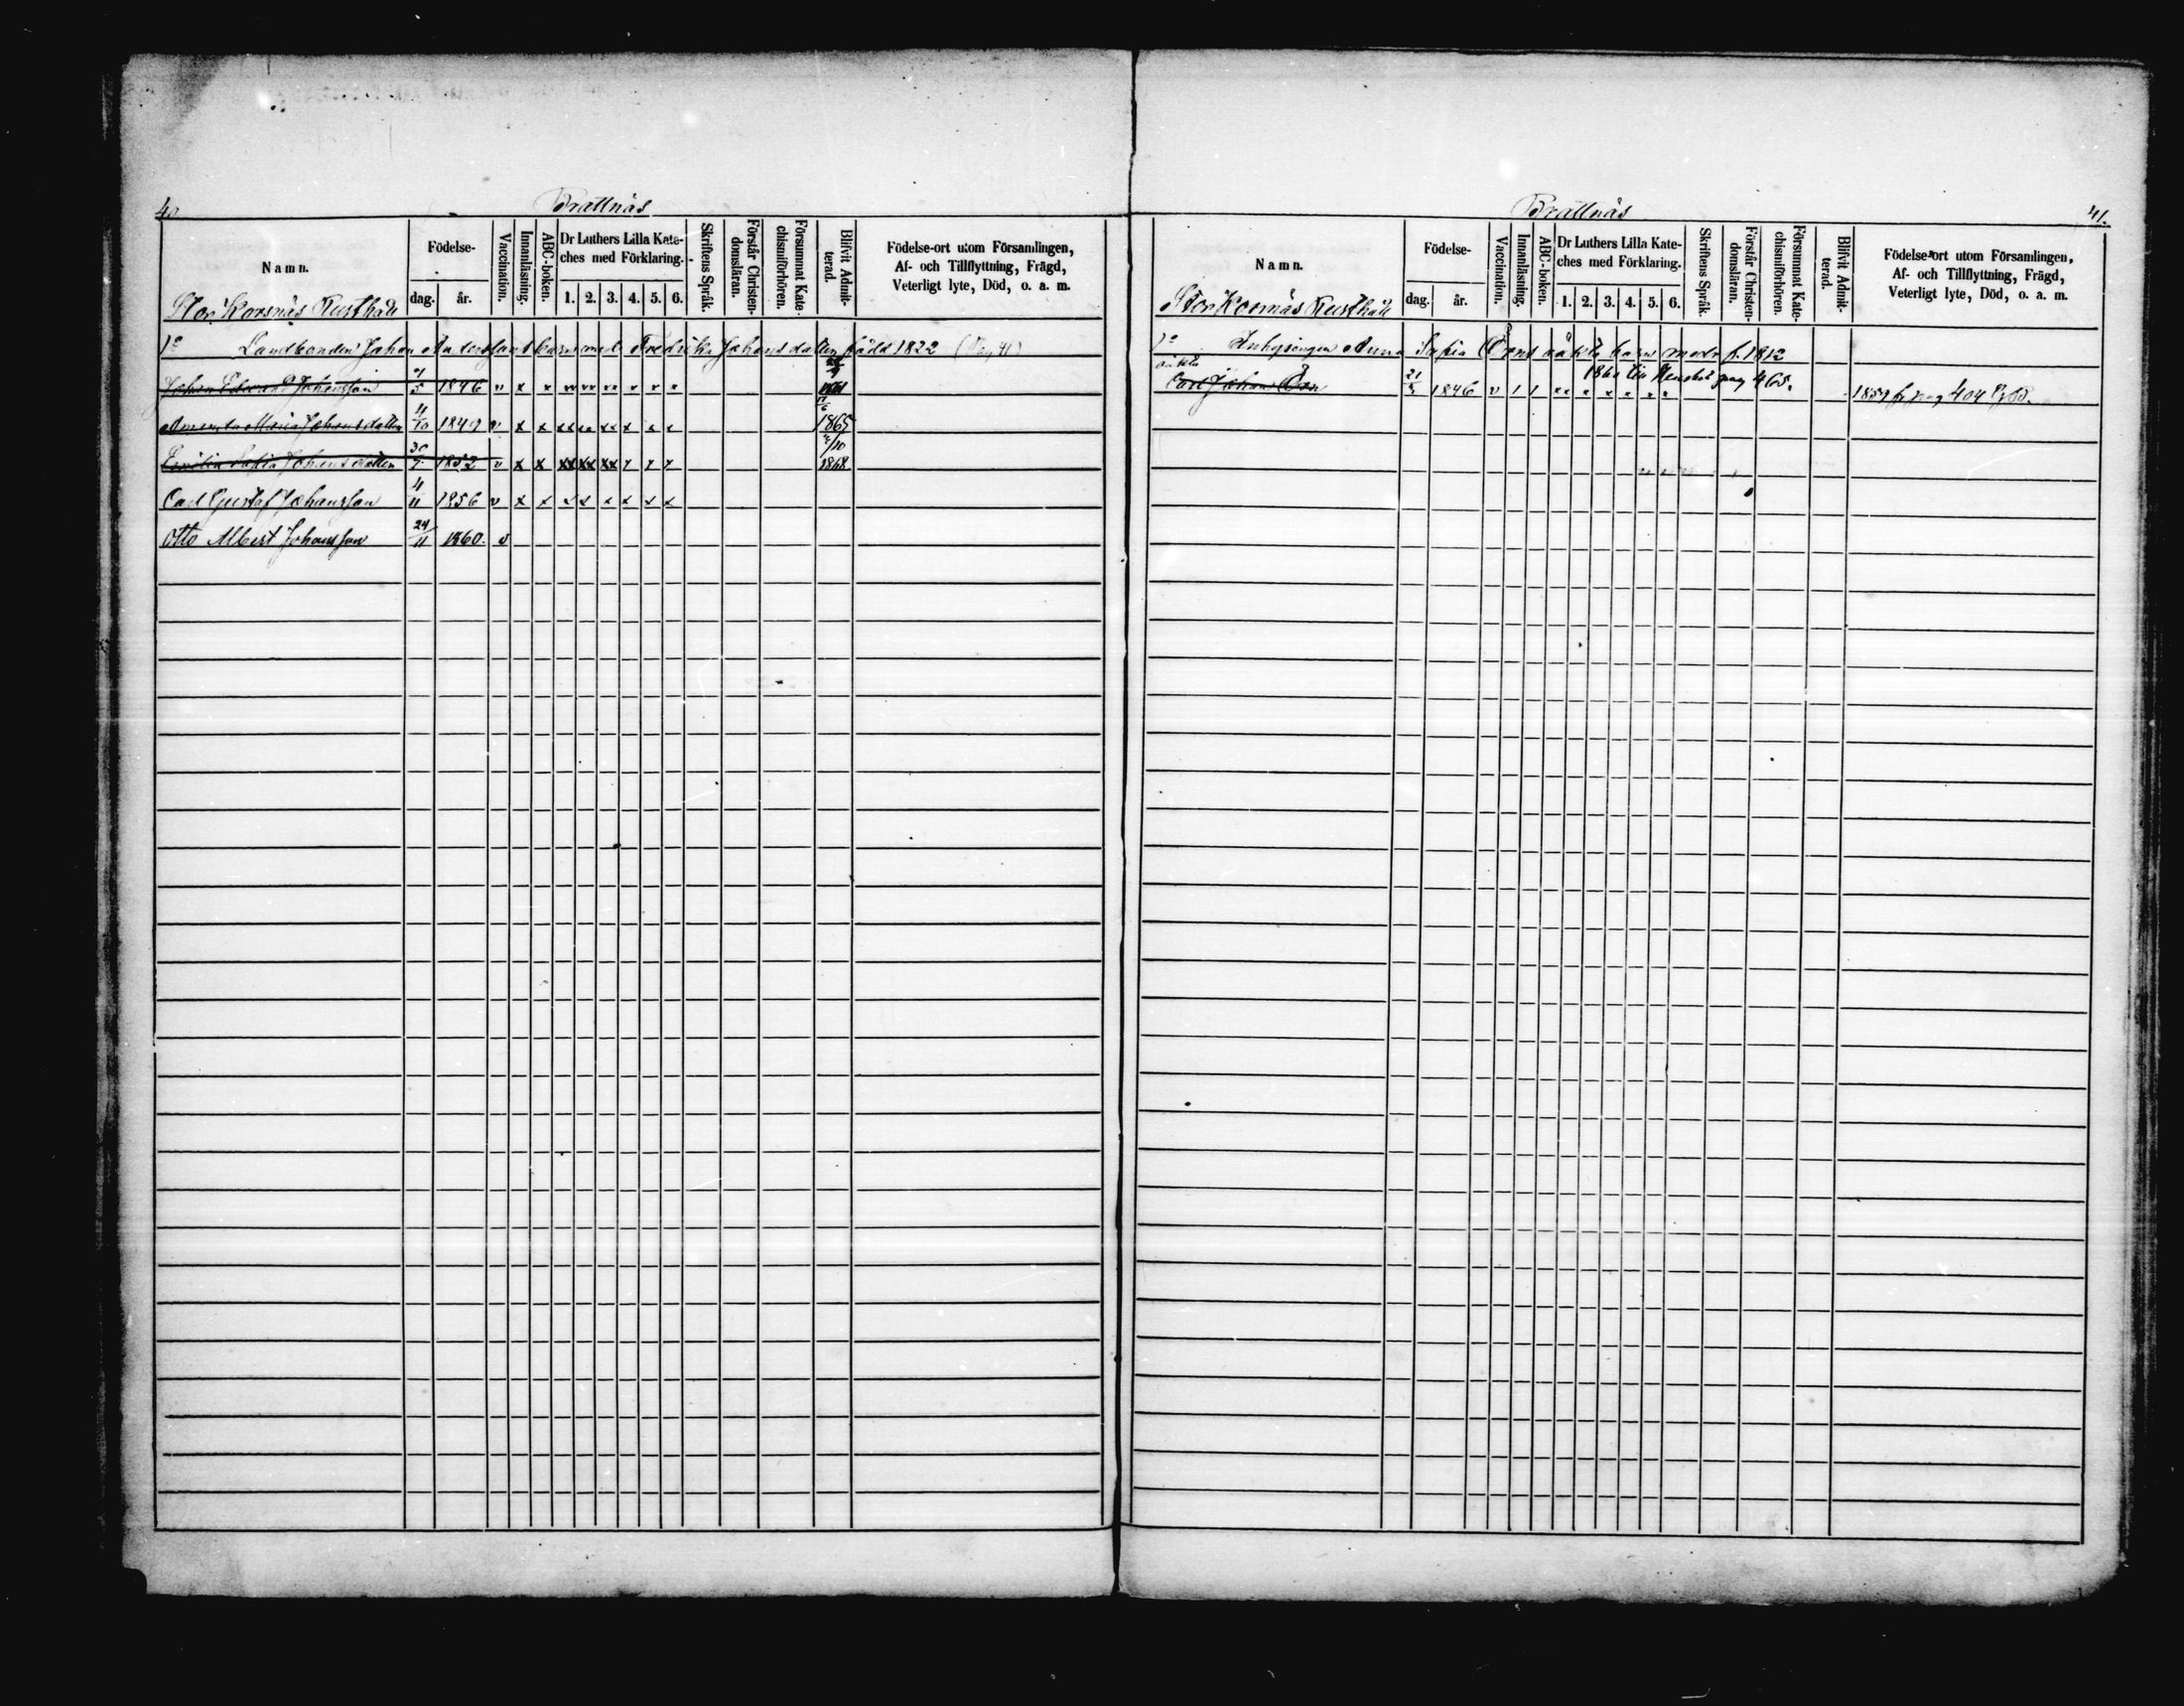 40
Brattnäs
Namn.
Födelse-
dag.
år.
Vaccination.
Innanläsning.
ABC-boken.
Dr Luthers Lilla Kate-
ches med Förklaring.
1. 2. 3. 4. 5. 6.
Skriftens Språk.
Förstår Christen-
domsläran.
Försummat Kate-
chismiförhören.
Blifvit Admit-
terad.
Födelse-ort utom Församlingen,
Af- och Tillflyttning, Frägd,
Veterligt lyte, Död, o. a. m.
Stor Korsnäs Rusthåll
1o Landbonden Johan Anderssons barn med Fredrika Johansdotter född 1822 (Pag 41)
Johan Edvard Johansson 5 1846 v x x 1861
Amanda Maria Johansdotter 4/10 1849 v x x xx xx xx x x x 1865
Emilia Sofia Johansdotter 30 1852 v x x xx xx xx 1868
Carl Gustaf Johansson 4/11 1856 v x x
Otto Albert Johansson 24/11 1860. v
Brattnäs
41.
Namn.
Födelse-
dag.
år.
Vaccination.
Innanläsning.
ABC-boken.
Dr Luthers Lilla Kate-
ches med Förklaring.
1. 2. 3. 4. 5. 6.
Skriftens Språk.
Förstår Christen-
domsläran.
Försummat Kate-
chismiförhören.
Blifvit Admit-
terad.
Födelse-ort utom Församlingen,
Af- och Tillflyttning, Frägd,
Veterligt lyte, Död, o. a. m.
Stor Korsnäs Rusthåll
1o Inhysingen Anna Sofia Örns oäkta barn med f. 1812
oäkta
Carl Johan Örn 21 1846 v 1 1 pag 465. 1859 fr pag 404